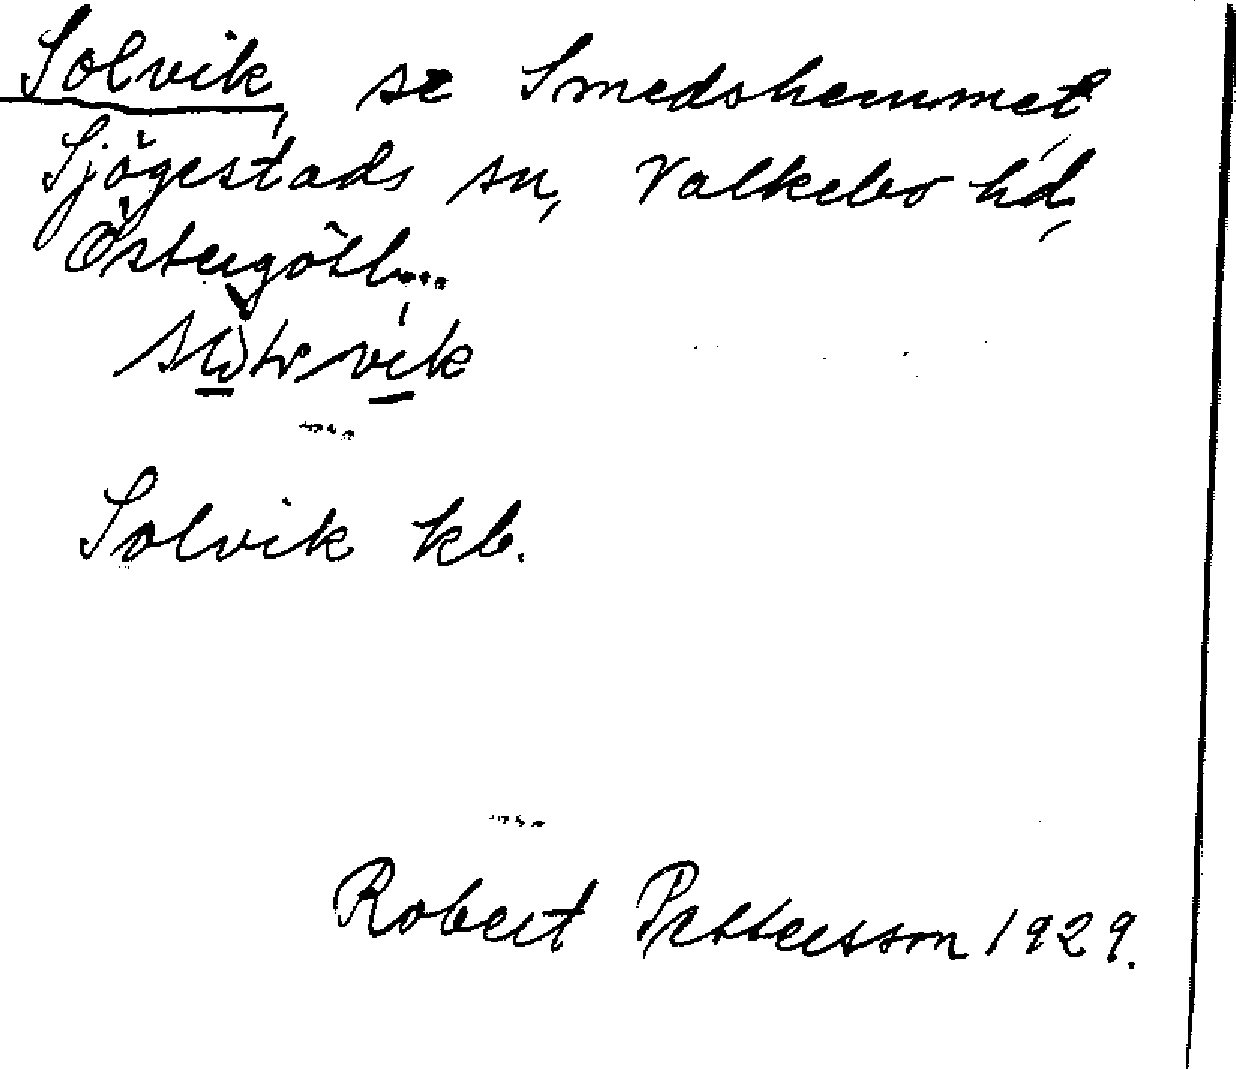 Solvik, se Smedshemmet,
Sjögestads sn, Valkebo hd,
Östergötl...
Solvik kb.
Robert Pettersson 1929.